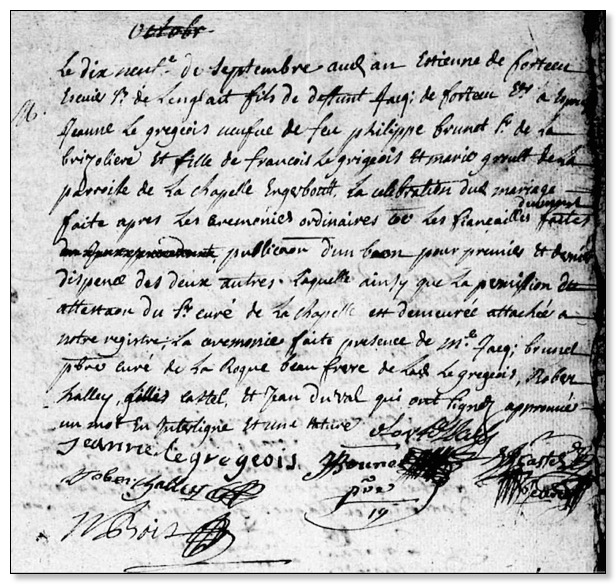 Octobr
M.
Le dix neuf.e de Septembre aud an Estienne de forteau
Escuier Sr. de Lenglait fils de deffunt Jacq; de forteau a Espousé
Jeanne Le gregeois veufue de feu philippe brunot Sr. de La
brizoliere et fille de francois Le grigeois et marie de La
paroisse de La chapelle Engerboult, La celebration dud mariage
faite apres Les ceremonies ordinaires et Les fiançailles duement faites
publicaon d'un baon pour premier et dernier
dispence des deux autres. Laquelle ainsy que La permission et
attestaon du Sr. curé de La chapelle est demeurée attachée a
notre registre, La ceremonie faite presence de M.e Jacq; brunet
pbre curé de La Roque beau frere de Lad. Le gregeois, Rober
halley, Gilles castel, et Jean duval qui ont signez approuué
un mot En Interligne et une rature
Jeanne le gregeois JBrunot Castel
Rober halley pbre
Bois